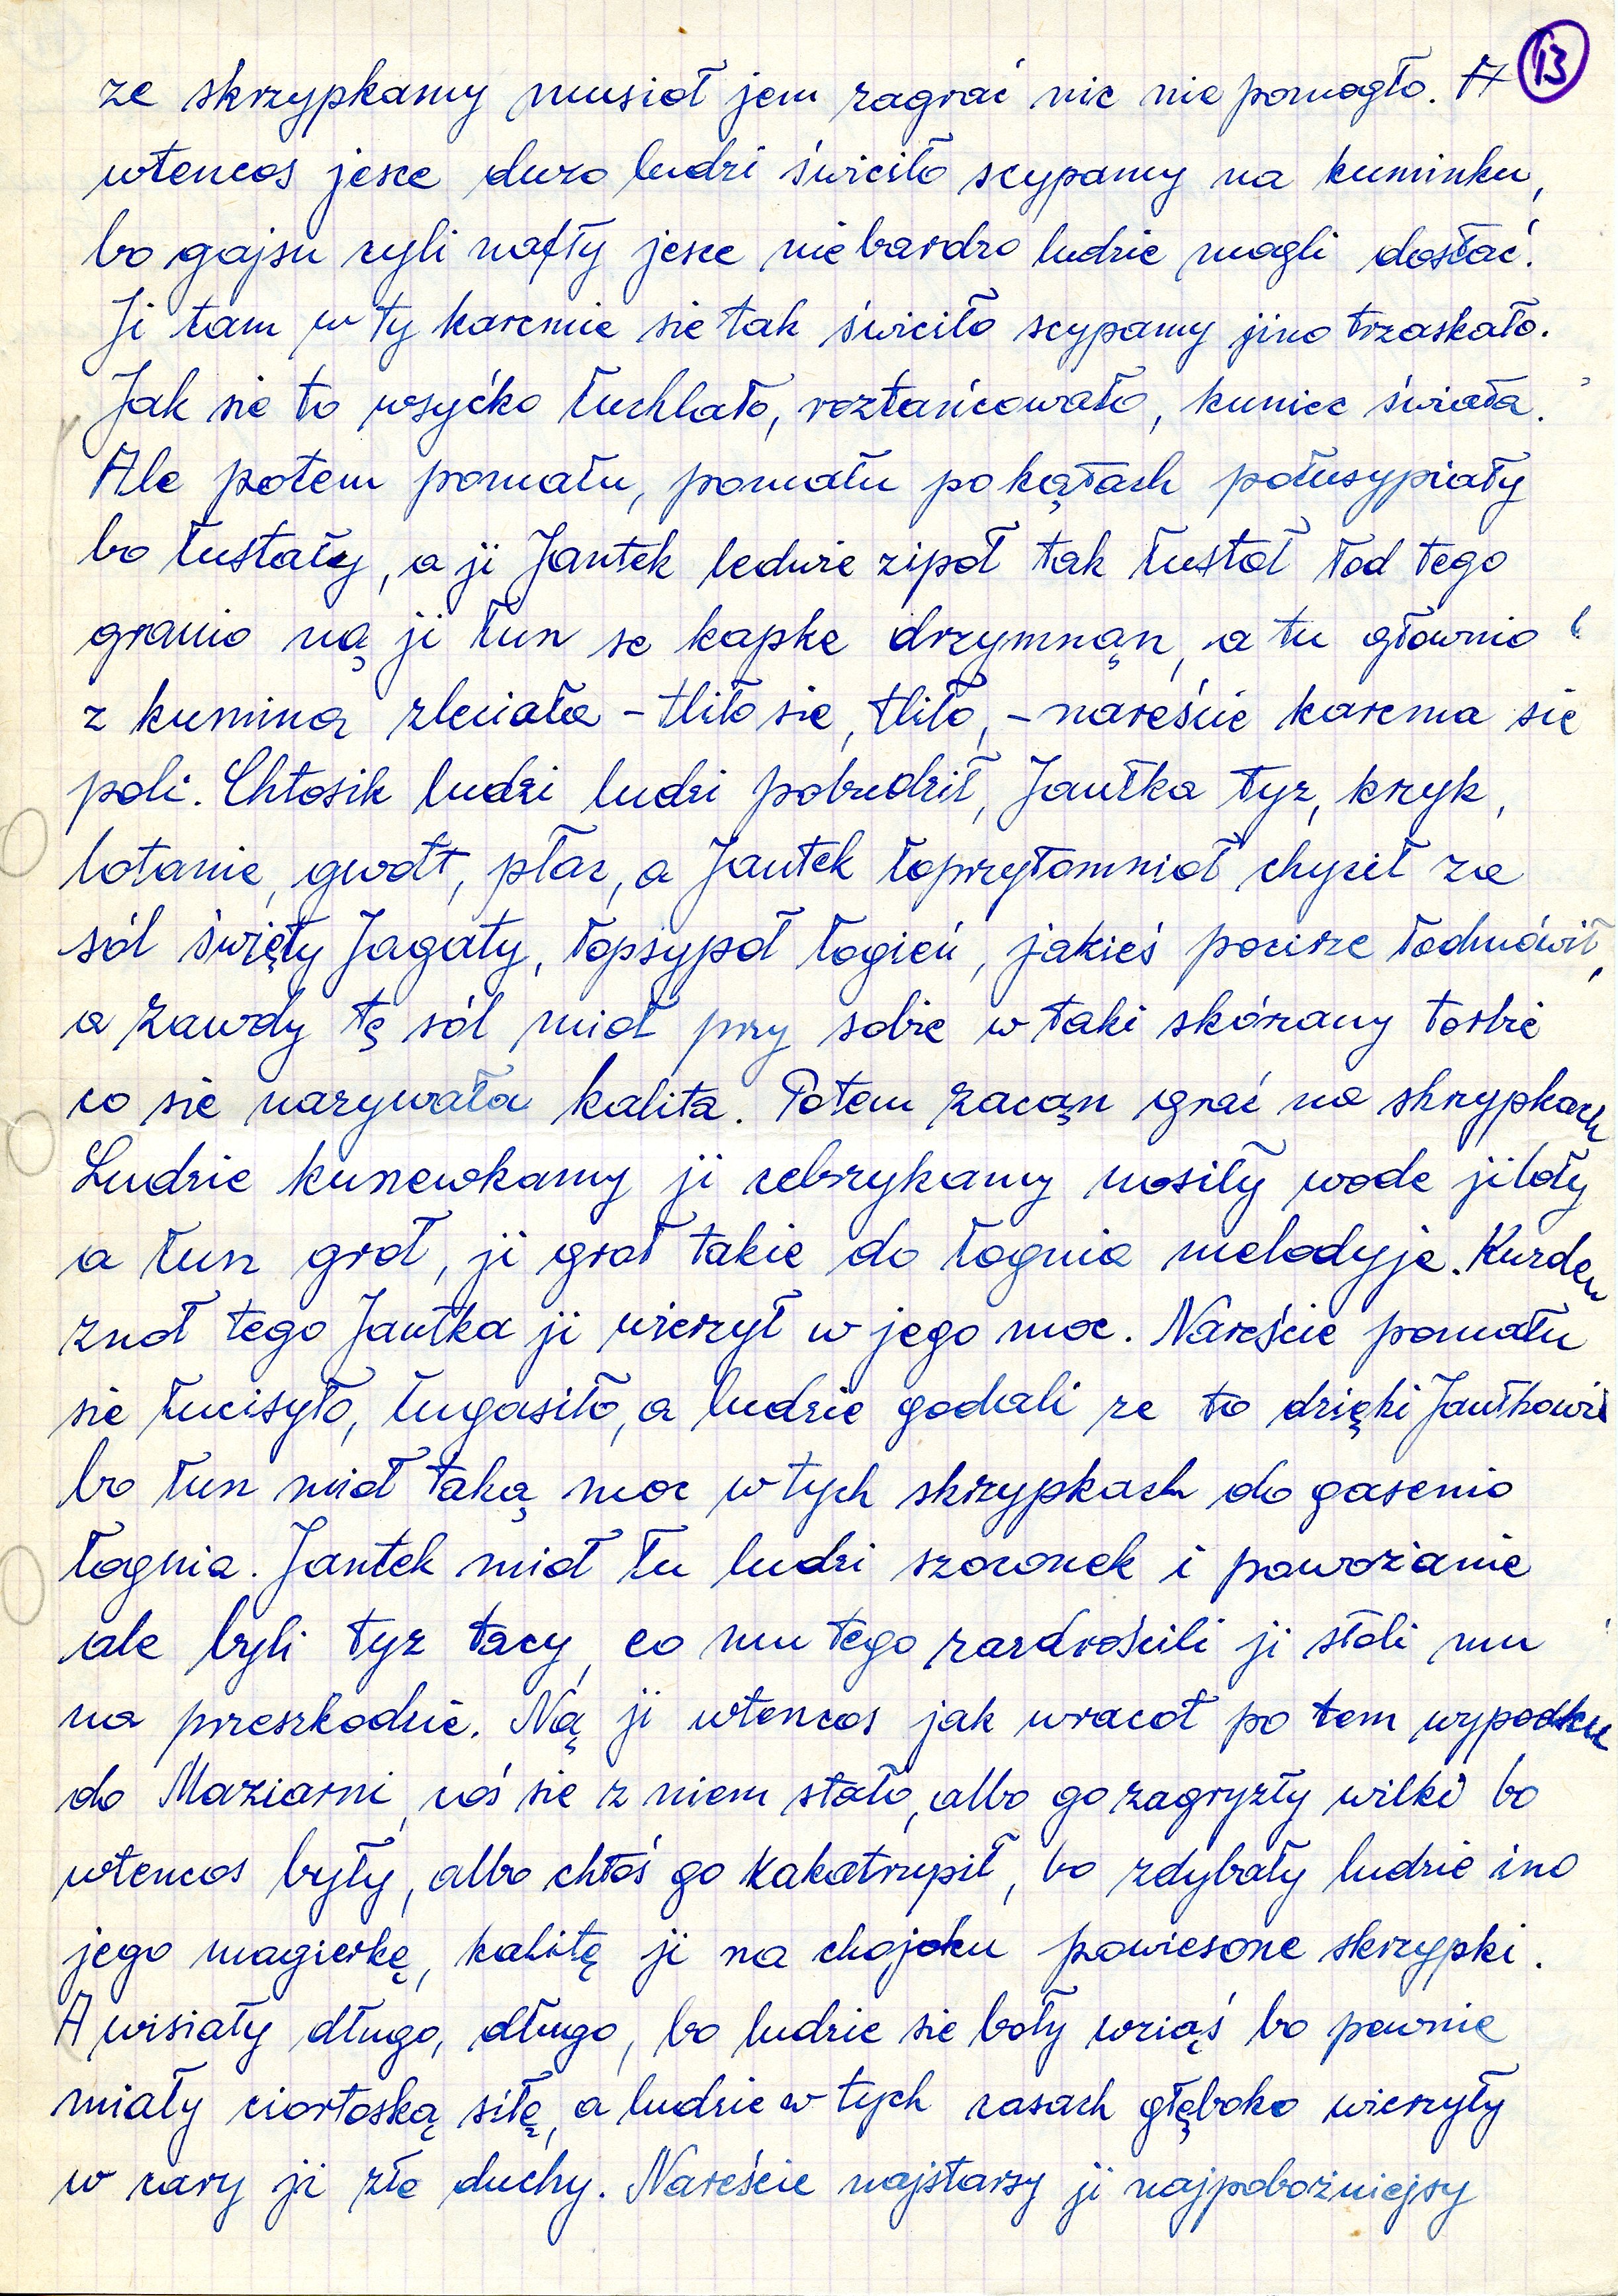 13
ze skrzypkamy musioł jem zagrać nic nie pomogło. A
wtencos jesce duzo ludzi świciło scypamy na kuminku,
bo gajsu cyli nafty jesce nie bardzo ludzie mogli dostać.
Ji tam w ty karcmie sie tak świciło scypamy jino trzaskało.
Jak sie to wsyćko łuchlało, roztańcowało, kuniec świata.
Ale potem pomału, pomału po kątach połusypiały
bo łustały, a ji Jantek ledwie zipoł tak łustoł łod tego
granio ną ji łun se kapke drzymnąn, a tu głownio
z kumina zleciała - tliło sie, tliło, - nareście karcma sie
poli. Chtosik ludzi ludzi pobudził, Jantka tyz, krzyk,
lotanie, gwołt, płac, a Jantek łoprzytomnioł chycił za
sól święty Jagaty, łopsypoł łogień, jakieś pocirze łodmówił,
a zawdy tę sól mioł przy sobie w taki skórzany torbie
co sie nazywała kalita. Potem zacąn grać na skrzypkach
Ludzie kunewkamy ji cebrzykamy nosiły wode ji loły
a łun groł, ji groł takie do łognia melodyje. Kurden
znoł tego Jantka ji wierzył w jego moc. Nareście pomału
sie łucisyło, ługasiło, a ludzie godali ze to dzięki Jantkowi
bo łun mioł taką moc w tych skrzypkach do gasenio
łognia. Jantek mioł łu ludzi szocunek i powozanie
ale byli tyz tacy, co mu tego zazdrościli ji stoli mu
na przeszkodzie. Ną ji wtencos jak wracoł po tem wypodku
do Maziarni, coś sie z niem stało, albo go zagryzły wilki bo
wtencos były, albo chtoś go kakatrupił, bo zdybały ludzie ino
jego magierkę, kalitę ji na chojoku powiesone skrzypki.
A wisiały długo, długo, bo ludzie sie boły wziąś bo pewnie
miały ciortoską siłę, a ludzie w tych casach głęboko wierzyły
w cary ji złe duchy. Nareście najstarsy ji najpobozniejsy